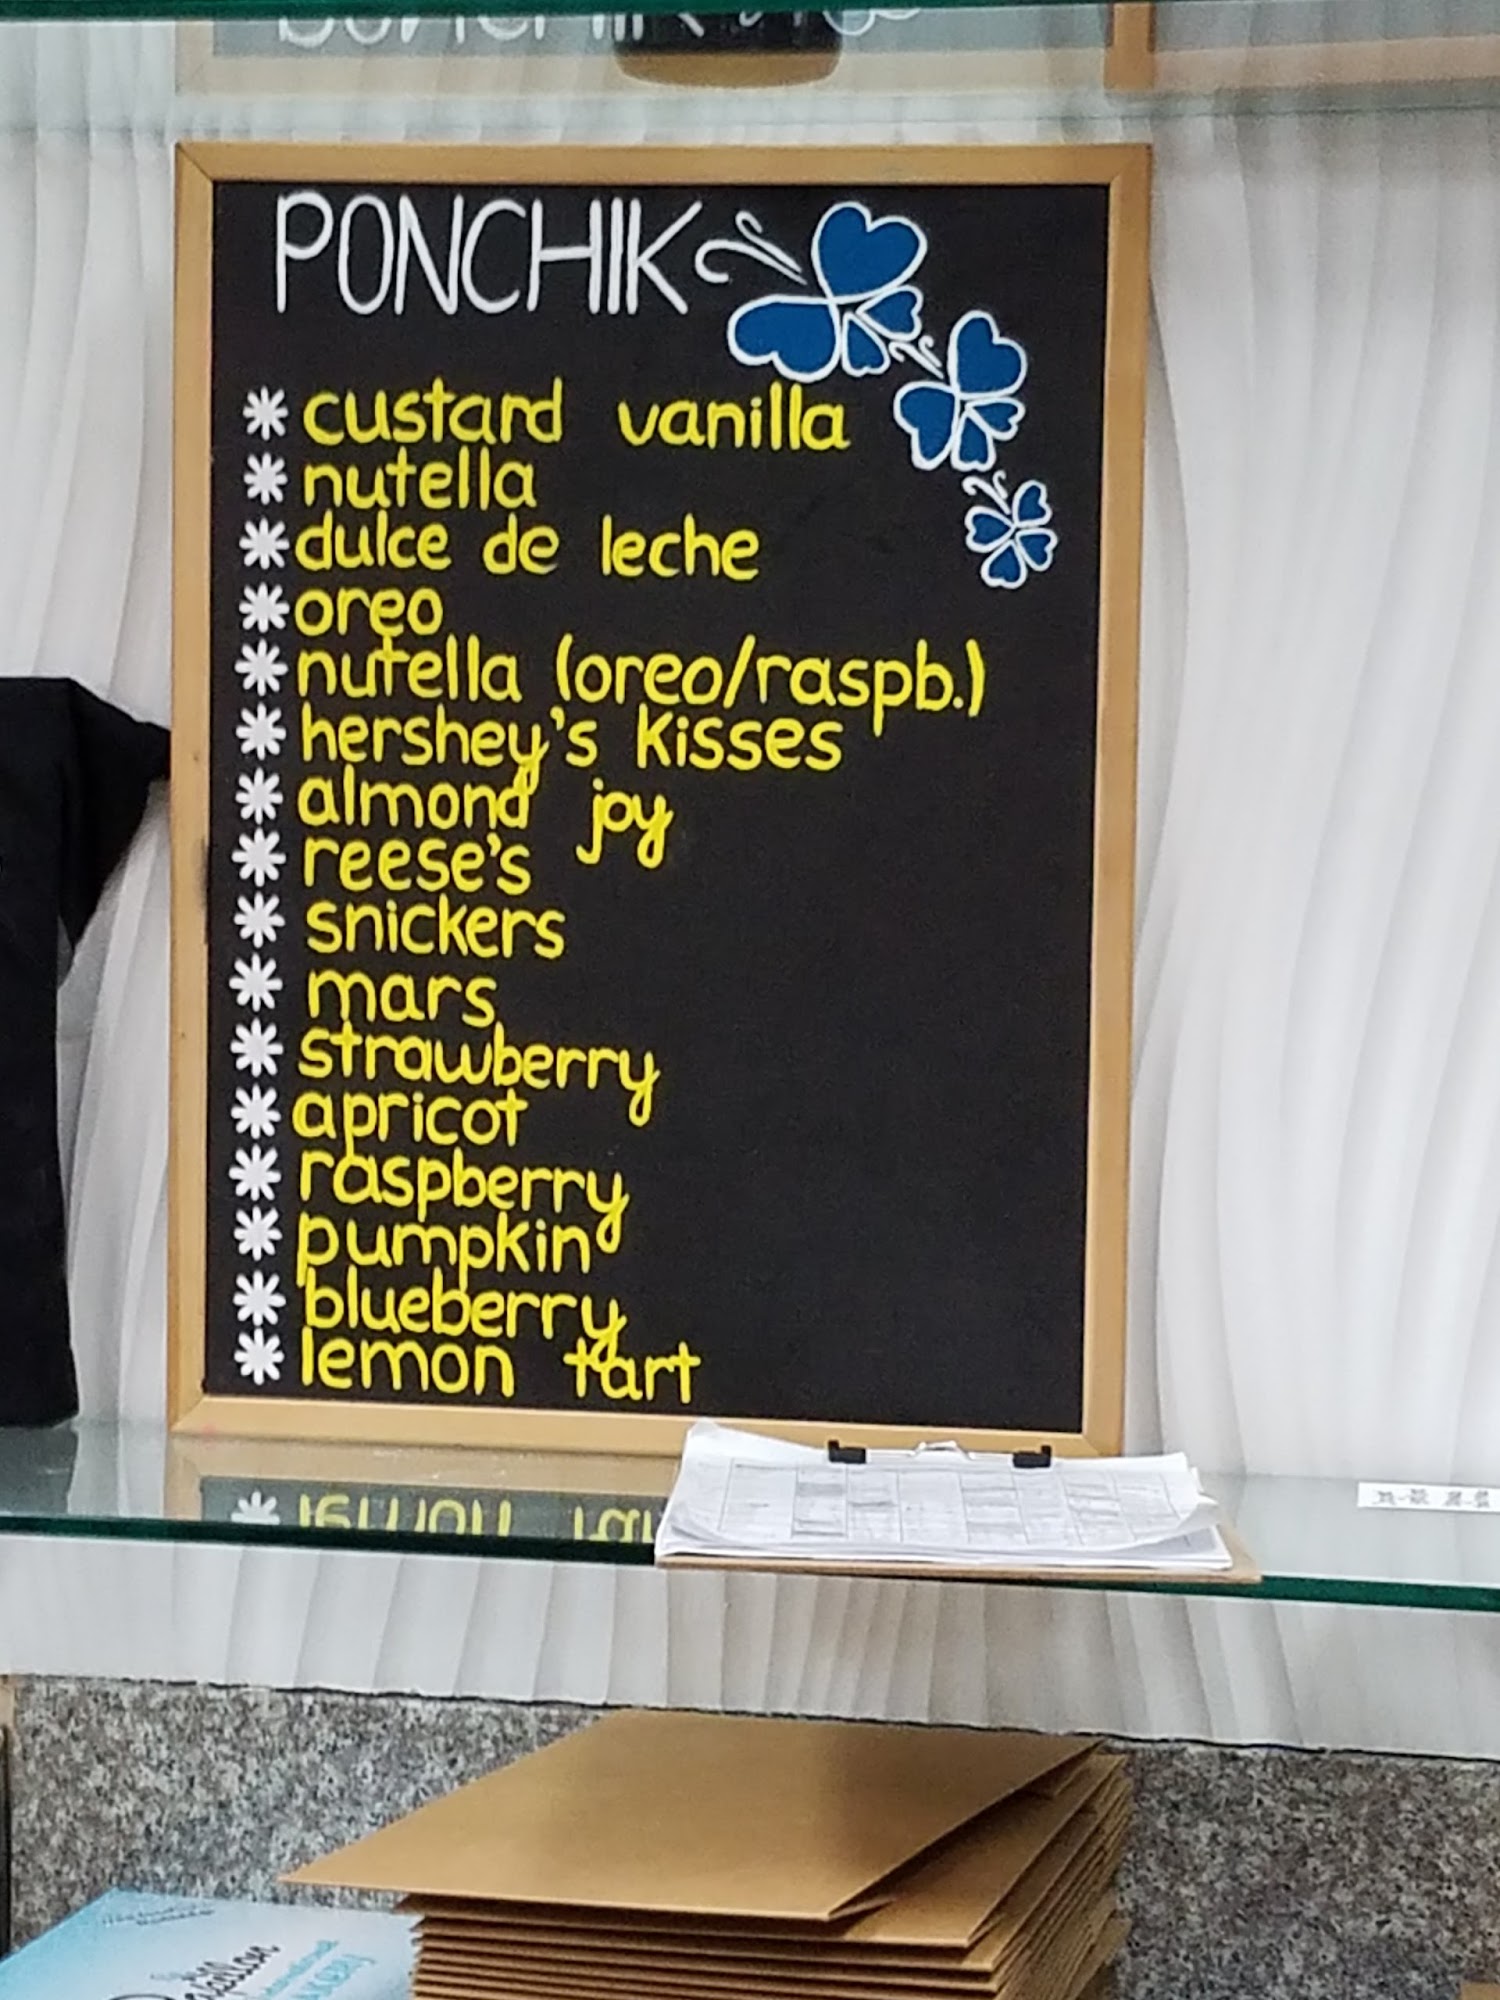 PONCHIK
custard vanilla
nutella
dulce de leche
oreo
nutella (oreo/raspb.)
hershey's kisses
almond joy
reese's
snickers
mars
strawberry
apricot
raspberry
pumpkin
blueberry
lemon tart